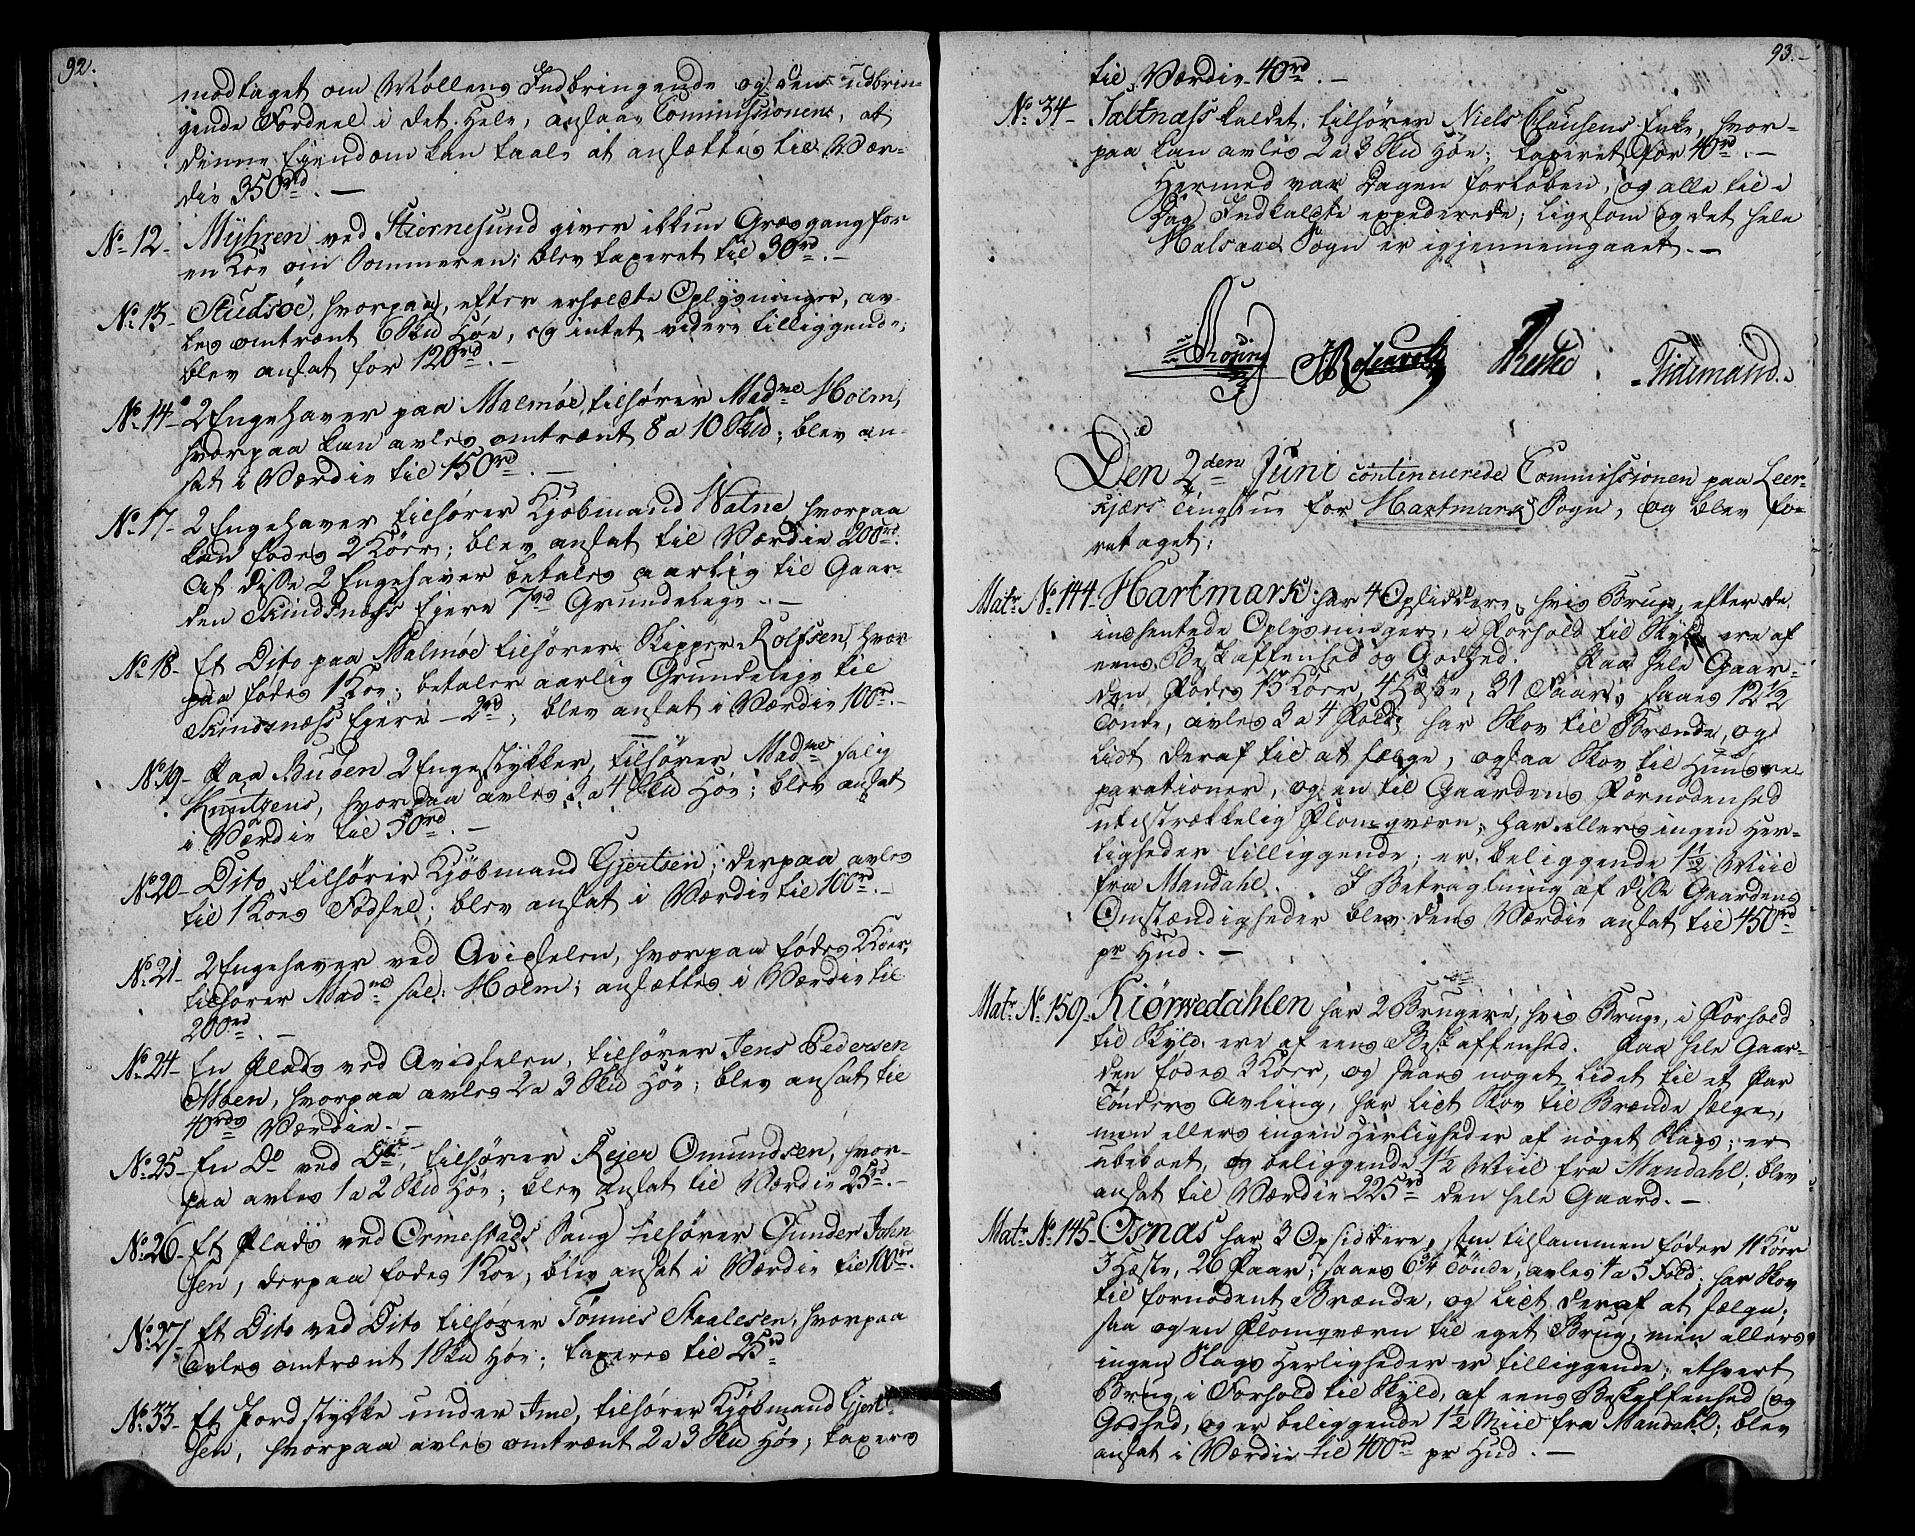 92.
modtaget om Møllens Indbringende og den udbrin-
gende Fordeel i det Hele, ansaae Commissionen, at
denne Eiendom kan taale at ansættes til Vær-
die 350rd. —
No 12 - Myhren ved Stiernesund giver ikkun Græsgang for
en Koe om Sommeren; blev taxeret til 30rd. —
No 13 - Studsøe, hvorpaa, efter erholdte Oplysninger, av-
les omtrent 6 Skd Høe, og intet videre tilliggende;
blev ansat for 120rd. —
No 14 - 2 Engehaver paa Malmøe, tilhører Madme Holm,
hvorpaa kan avles omtrent 8 a 10 Skd; blev an-
sat i Værdie til 150rd. —
No 17 - 2 Engehaver tilhører Kjøbmand Natne, hvorpaa
kan fødes 2 Køer; blev ansat til Værdie 200rd.
Af disse 2 Engehaver betales aarlig til Gaar-
den Skindsnæss Ejere 7rd Grundeleye. —
No 18 - Et Dito paa Malmøe tilhører Skipper Rolfsen, hvor-
paa fødes 1 Koe; betaler aarlig Grundeleye til
Skindsnæss Ejere - 2rd; blev ansat i Værdie 100rd. —
No 19 - Paa Buøen 2 Engestykker, tilhører Madme salig
Knutzens, hvorpaa avles 3 a 4 Skd Høe; blev ansat
i Værdie til 50rd. —
No 20 - Dito, tilhører Kjøbmand Gjertsen, derpaa avles
til 1 Koes Fødsel; blev ansat i Værdie til 100rd. —
No 21 - 2 Engehaver ved Avidselen, hvorpaa fødes 2 Køer,
tilhører Madme sal: Holm; ansættes i Værdie til
200rd. —
No 24 - En Plads ved Avidselen, tilhører Jens Pedersen
Moen, hvorpaa avles 2 a 3 Skd Høe; blev ansat til
40rds Værdie. —
No 25 - En Do ved Do, tilhører Rejer Omundsen, hvor-
paa avles 1 a 2 Skd Høe; blev ansat til Værdie 25rd. —
No 26 - Et Plads ved Ormestads Saug tilhører Gunder John-
sen, derpaa fødes 1 Koe, blev ansat i Værdie til 100rd.
No 27 - Et Dito ved Dito tilhører Tønnis Staalesen, hvorpaa
avles omtrent 1 Skd Høe; taxeres til 25rd
No 33 - Et Jordstykke under Ime, tilhører Kjøbmand Gjert-
sen, hvorpaa avles omtrent 2 a 3 Skd Høe; taxeres
93. -
til Værdie 40rd. —
No 34 - Saltnæss kaldet, tilhører Niels Clausens Enke, hvor-
paa kan avles 2 a 3 Skd Høe; taxeret for 40rd. —
Hermed var Dagen forløben, og alle til i
Dag Indkaldte expederede; ligesom og det hele
Halsaae Sogn er igjennemgaaet. —
Tidemand.
Den 2den Juni continuerede Commissionen paa Leer-
kjærs Tingstue for Hartmarks Sogn, og blev fo-
retaget:
Matr No 144. Hartmark har 4 Opsiddere, hvis Bruge, efter de
indhentede Oplysninger, i Forhold til Skyld ere af
eens Beskaffenhed og Godhed. Paa hele Gaar-
den Fødes 15 Køer, 4 Hæste, 31 Faar, saaes 12 1/2
Tønde, avles 3 a 4 Fold, har Skov til Brænde, og
lidt deraf til at sælge, ogsaa Skov til Huusre-
parationer, og en til Gaardens Fornødenhed
utilstrækkelig Flomqværn, har ellers ingen Her-
ligheder tilliggende; er beliggende 1 1/2 Miil
fra Mandahl. I Betragtning af disse Gaardens
Omstændigheder blev dens Værdie ansat til 450rd
pr Hud. —
Matr No 159. Kiørredahlen har 2 Brugere, hvis Bruge, i Forhold
til Skyld, ere af eens Beskaffenhed. Paa hele Gaar-
den fødes 3 Køer, og saaes noget lidet til et Par
Tønders Avling, har lidt Skov til Brænde sælge,
men ellers ingen Herligheder af noget Slags; er
ubeboet, og beliggende 1 1/2 Miil fra Mandahl; blev
ansat til Værdie 225rd den hele Gaard. —
Matr No 145. Osnæs har 3 Opsiddere, som tilsammen føder 11 Køer
3 Hæste, 26 Faar; saaes 6 3/4 Tønde, avles 4 a 5 Fold; har Skov
til fornødent Brænde, og lidt deraf at sælge;
saa og en Flomqværn til eget Brug, men ellers
ingen Slags Herligheder er tilliggende; ethvert
Brug, i Forhold til Skyld, af eens Beskaffenhed og
Godhed, og er beliggende 1 1/2 Miil fra Mandahl; blev
ansat i Værdie til 400rd pr Hud. —